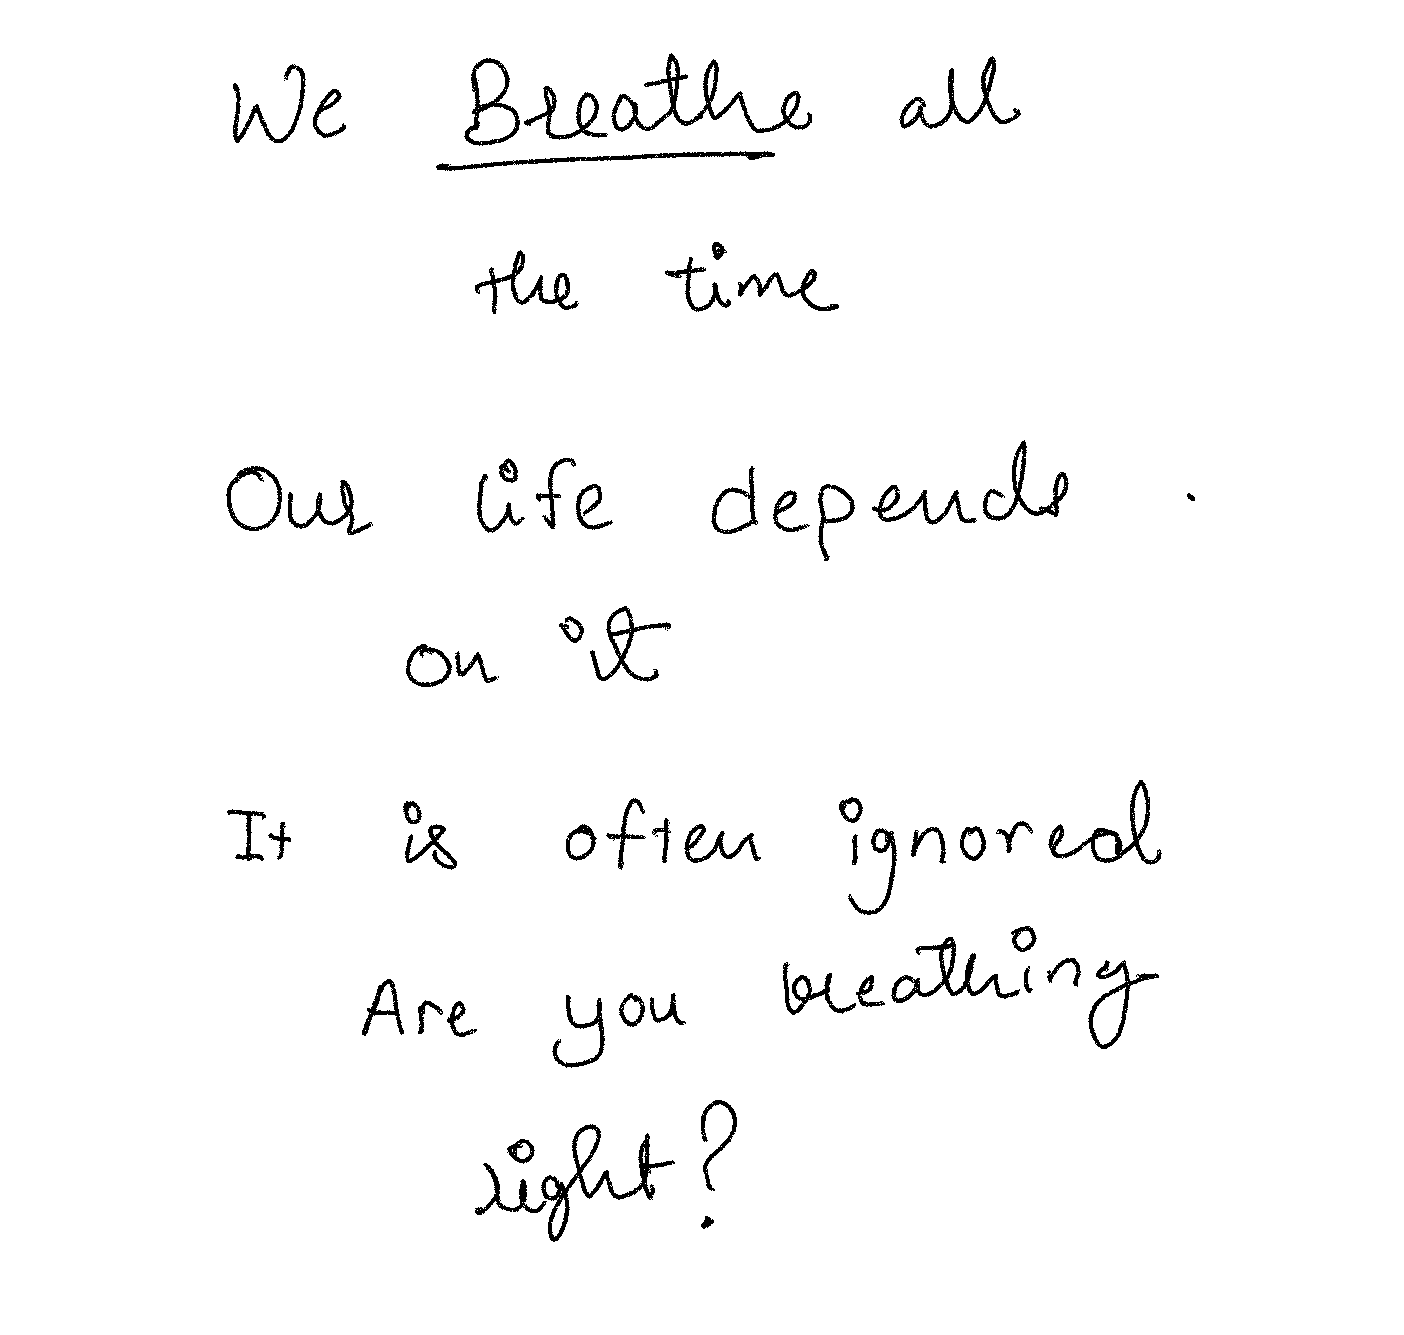 We Breathe all
the time
Our life depends
on it
It is often ignored
Are you breathing
right?